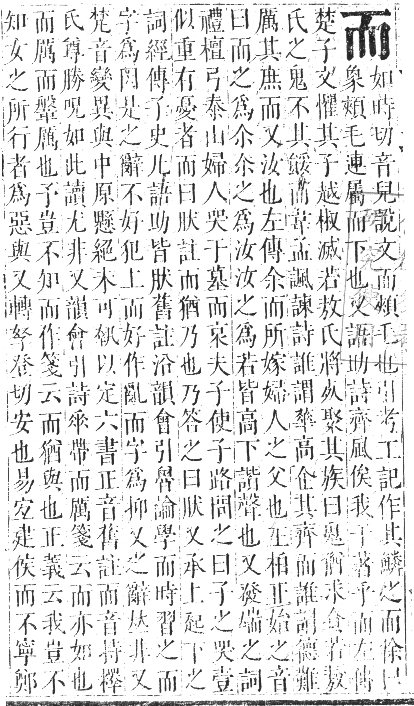 而
如時切音兒說文而頰毛也引考工記作其鱗之而徐曰
象頰毛連屬而下也又語助詩齊風俟我于著乎而左傳
楚子文懼其子越椒滅若敖氏將死聚其族曰鬼猶求食若敖
氏之鬼不其餒而韋孟諷諫詩誰謂華高企其齊而誰謂德難
厲其庶而又汝也左傳余而所嫁婦人之父也左柏正始之音
曰而之為尒尒之為汝汝之為若皆高下諧聲也又發端之詞
禮檀弓泰山婦人哭于墓而哀夫子使子路問之曰子之哭壹
似重有憂者而曰肰註而猶乃也乃答之曰肰又承上起下之
詞經傳子史凡語助皆肰舊註沿韻會引魯論學而時習之而
字為因是之辭不好犯上而好作亂而字為抑又之辭𠀤非又
楚音變異與中原懸絕未可執以定六書正音舊註而音特
氏尊勝呪如此讀尤非又韻會引詩垂帶而厲箋云而亦如也
而厲而鞶厲也予豈不知而作箋云而猶與也正義云我豈不
知女之所行者為惡與又轉弩登切安也易宜建侯而不寧鄭